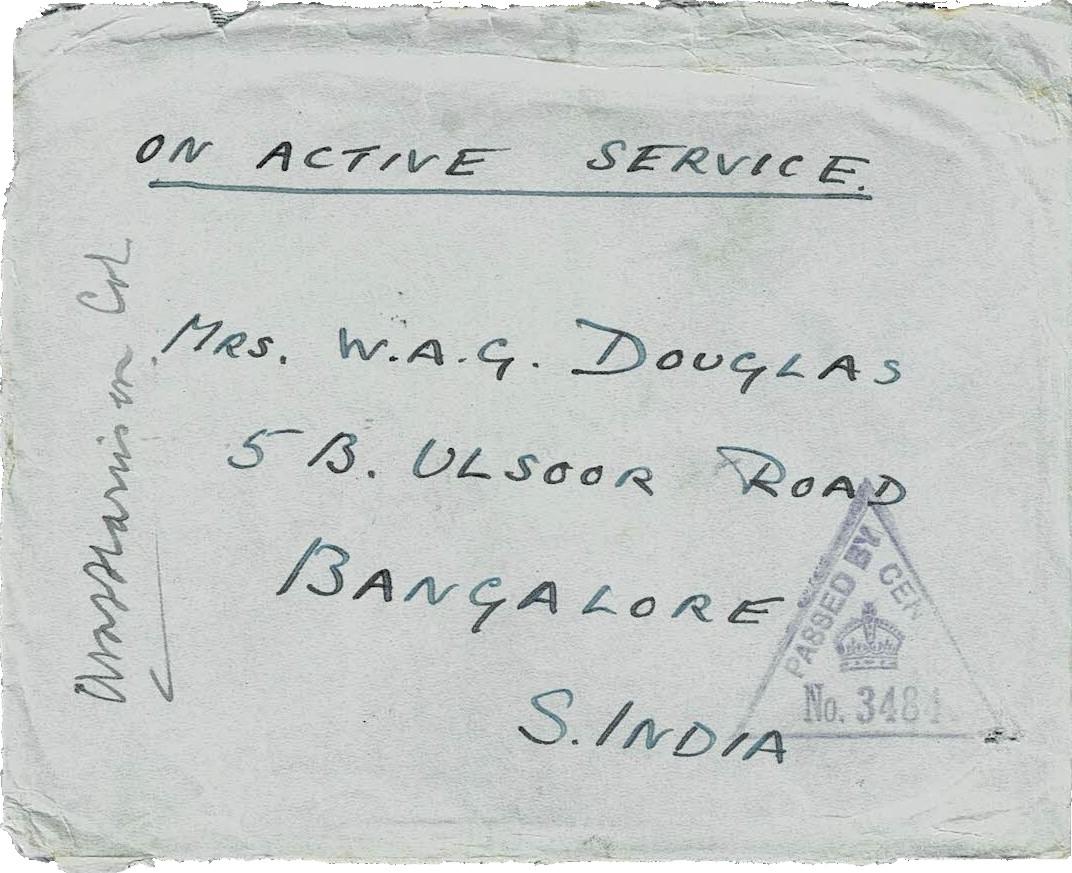 ON ACTIVE SERVICE.
Mrs. W.A.G. DOUGLAS
5 B. ULSOOR ROAD
BANGALORE
S. INDIA
PASSED BY
No. 3484